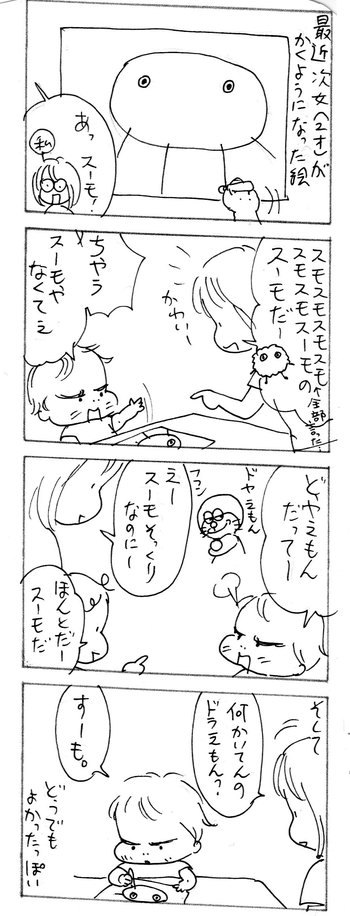 最近次女(2才)が
かくようになった絵
私
あっ
スーモ!
スモスモスモスモ
スモスモスーモの
スーモだー
全部言った
かわいー
ちゃう
スーモや
なくてぇ
どやえもん
だってー
ドヤえもん
フフン
えー
スーモそっくり
なのにー
ほんとだー
スーモだ
そして
何かいてんの
ドラえもん?
すーも。
どっちでも
よかったっぽい